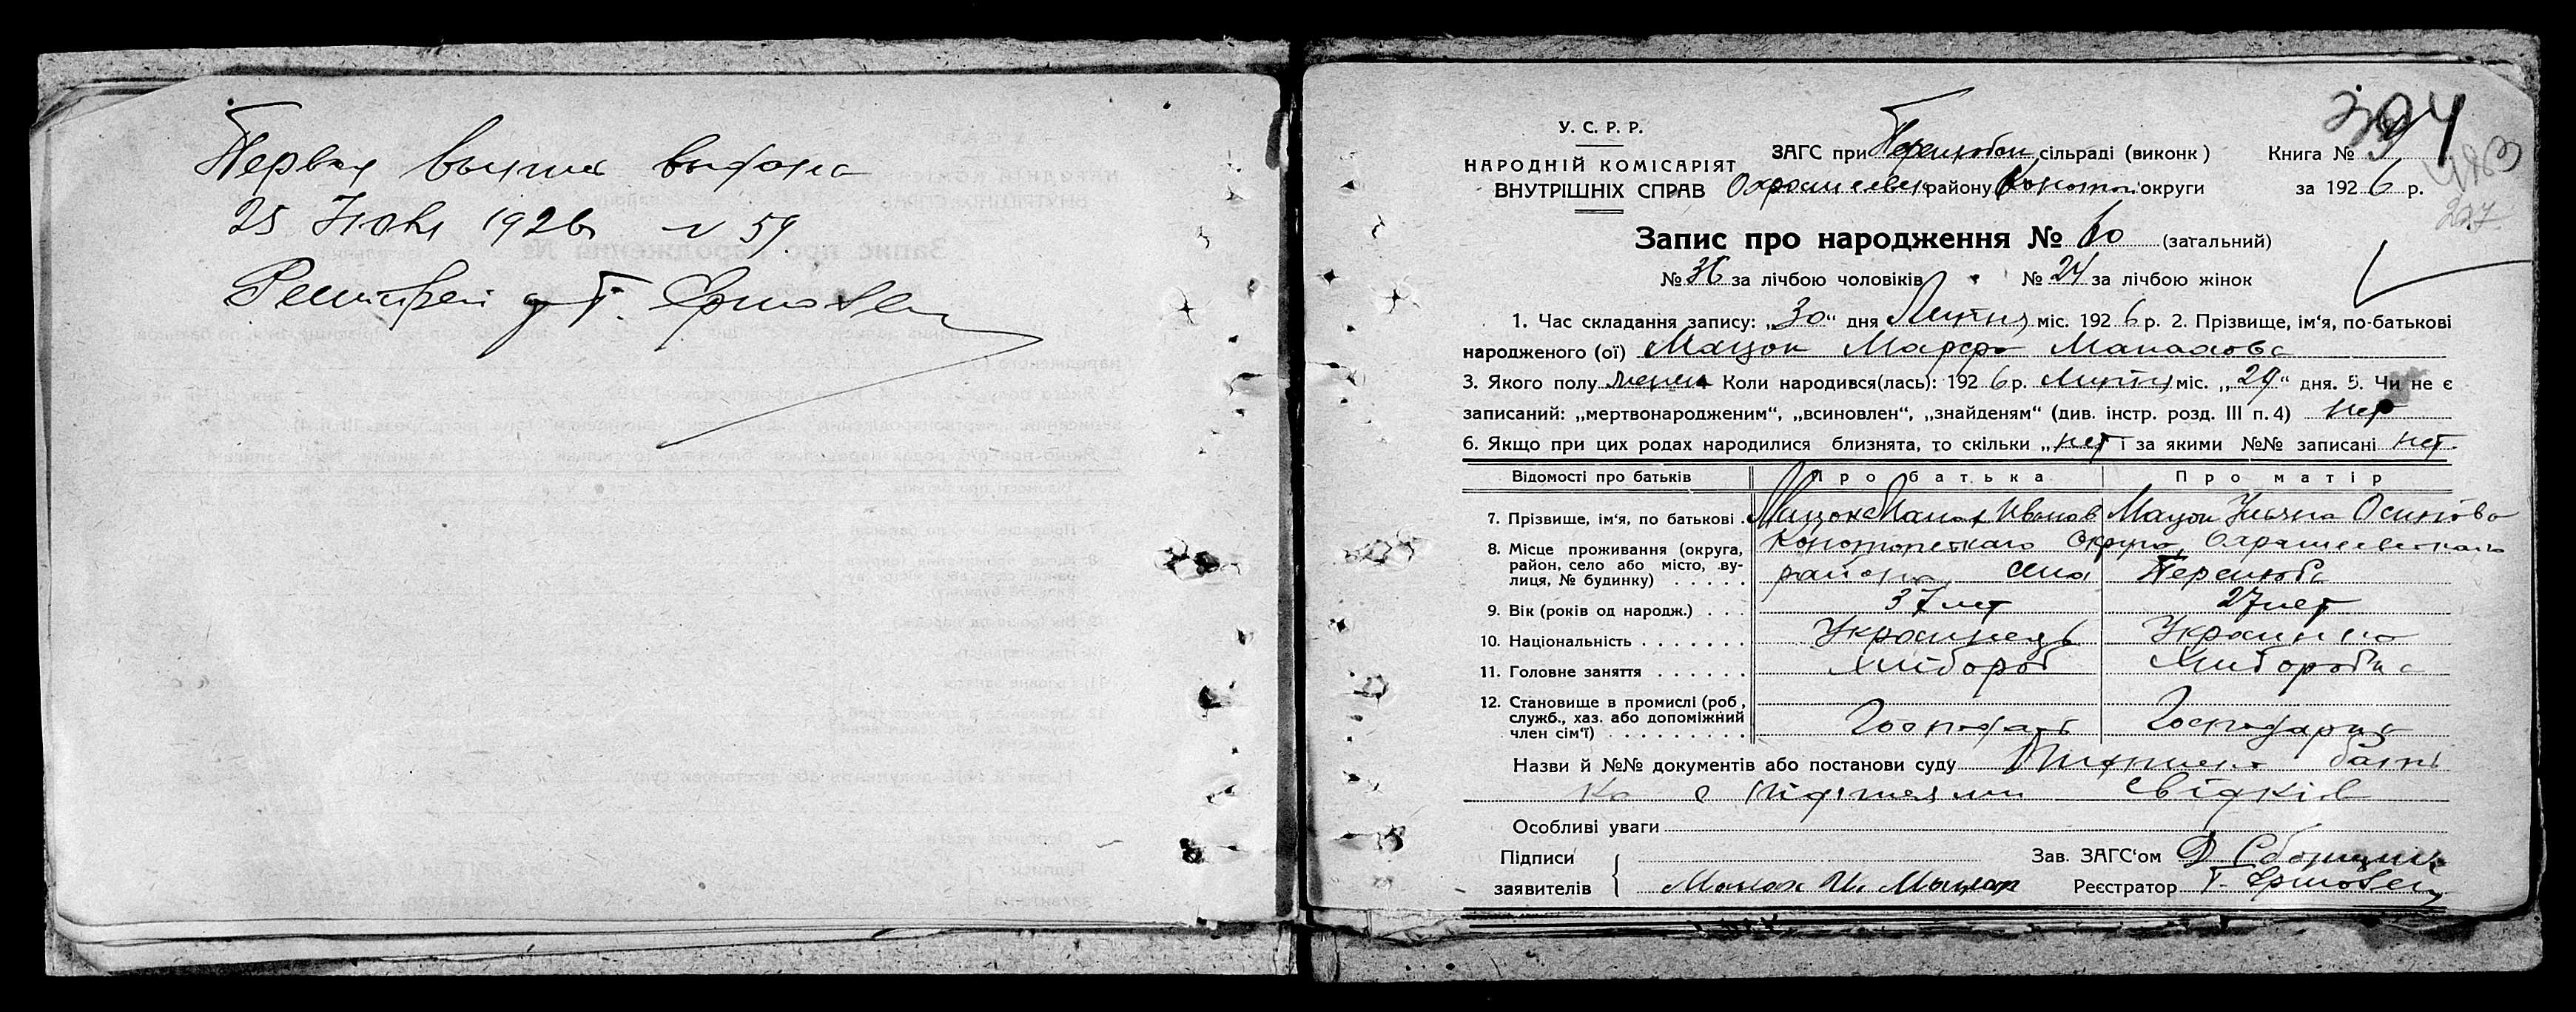 Первая выпись выдана
25 Июля 1926 № 59
Т. Ермовец
394
У. С. Р. Р.
НАРОДНІЙ КОМІСАРІЯТ
ВНУТРІШНІХ СПРАВ
ЗАГС при сільраді (виконк)
району Коното. округи
Книга № 9
за 1926 р.
227
Запис про народження № 60 (загальний)
№ 36 за лічбою чоловіків № 24 за лічбою жінок
1. Час складання запису: „30“ дня Липня міс. 1926 р. 2. Прізвище, ім‘я, по-батькові
народженого (ої) Мацок Марфа Манахова
3. Якого полу женск Коли народився(лась): 1926 р. Липня міс. „29“ дня. 5. Чи не є
записаний: „мертвонародженим“, „всиновлен“, „знайденям“ (див. інстр. розд. III п. 4) нет
6. Якщо при цих родах народилися близнята, то скільки „нет і за якими №№ записані нет.
Відомості про батьків Про батька Про матір
7. Прізвище, ім‘я, по батькові Мацок Манах Иванов Мацок Осипова
8. Місце проживання (округа, район, село або місто, вулиця, № будинку) Конотопского Округа,
района, села
9. Вік (років од народж.) 37 лет 27 лет
10. Національність Українець Українка
11. Головне заняття Хлібороб Хліборобка
12. Становище в промислі (роб, служб., хаз. або допоміжний член сім‘ї) Господарь Господарка
Назви й №№ документів або постанови суду бать
ка с підписями свідків
Особливі уваги
Підписи заявителів Манах И. Мацок
Зав. ЗАГС‘ом
Реєстратор Т. Ермовец